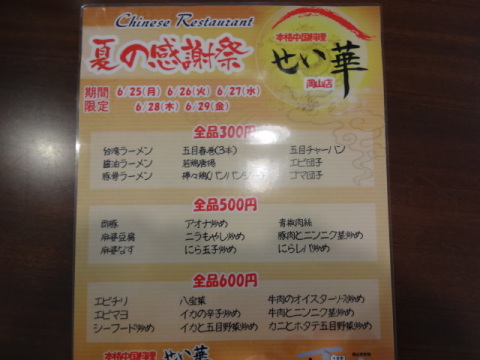 Chinese Restaurant
夏の感謝祭
本格中国料理
せい華
岡山店
期間限定 6/25(月) 6/26(火) 6/27(水)
6/28(木) 6/29(金)
全品300円
台湾ラーメン 五目春巻(3本) 五目チャーハン
醤油ラーメン 若鶏唐揚 エビ団子
豚骨ラーメン 棒々鶏(バンバンジー) ゴマ団子
全品500円
回鍋 アオナ炒め 青椒肉絲
麻婆豆腐 ニラもやし炒め 豚肉とニンニク茎炒め
麻婆なす にら玉子炒め にらレバ炒め
全品600円
エビチリ 八宝菜 牛肉のオイスターソース炒め
エビマヨ イカの辛子炒め 牛肉とニンニク茎炒め
シーフード炒め イカと五目野菜炒め カニとホタテ五目野菜炒め
本格中国料理
せい華